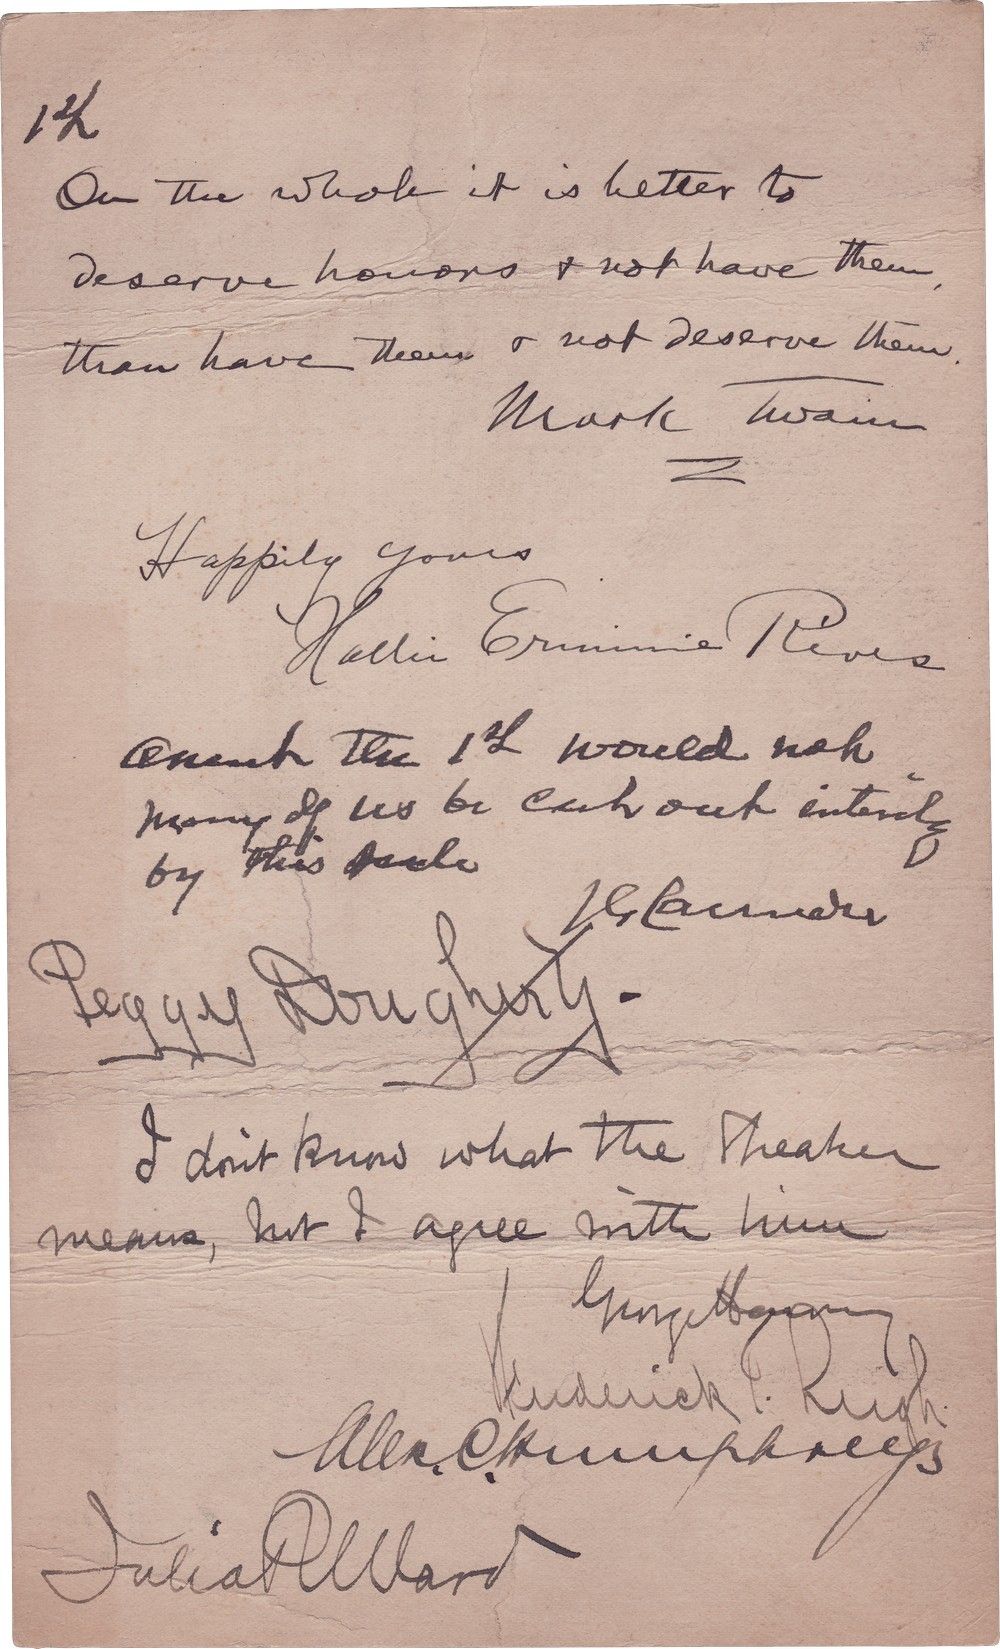 1st
On the whole it is better to
deserve honors & not have them,
than have them & not deserve them.
Mark Twain
Happily yours
Hallie Erminie Rives
Anent the 1st would not
many of us be cut out entirely
by this rule
Peggy Dougherty.
I don't know what the Theaker
means, but I agree with him
George Harvey
Frederick T. Leigh.
Alex. C. Humphreys
Julia R Ward